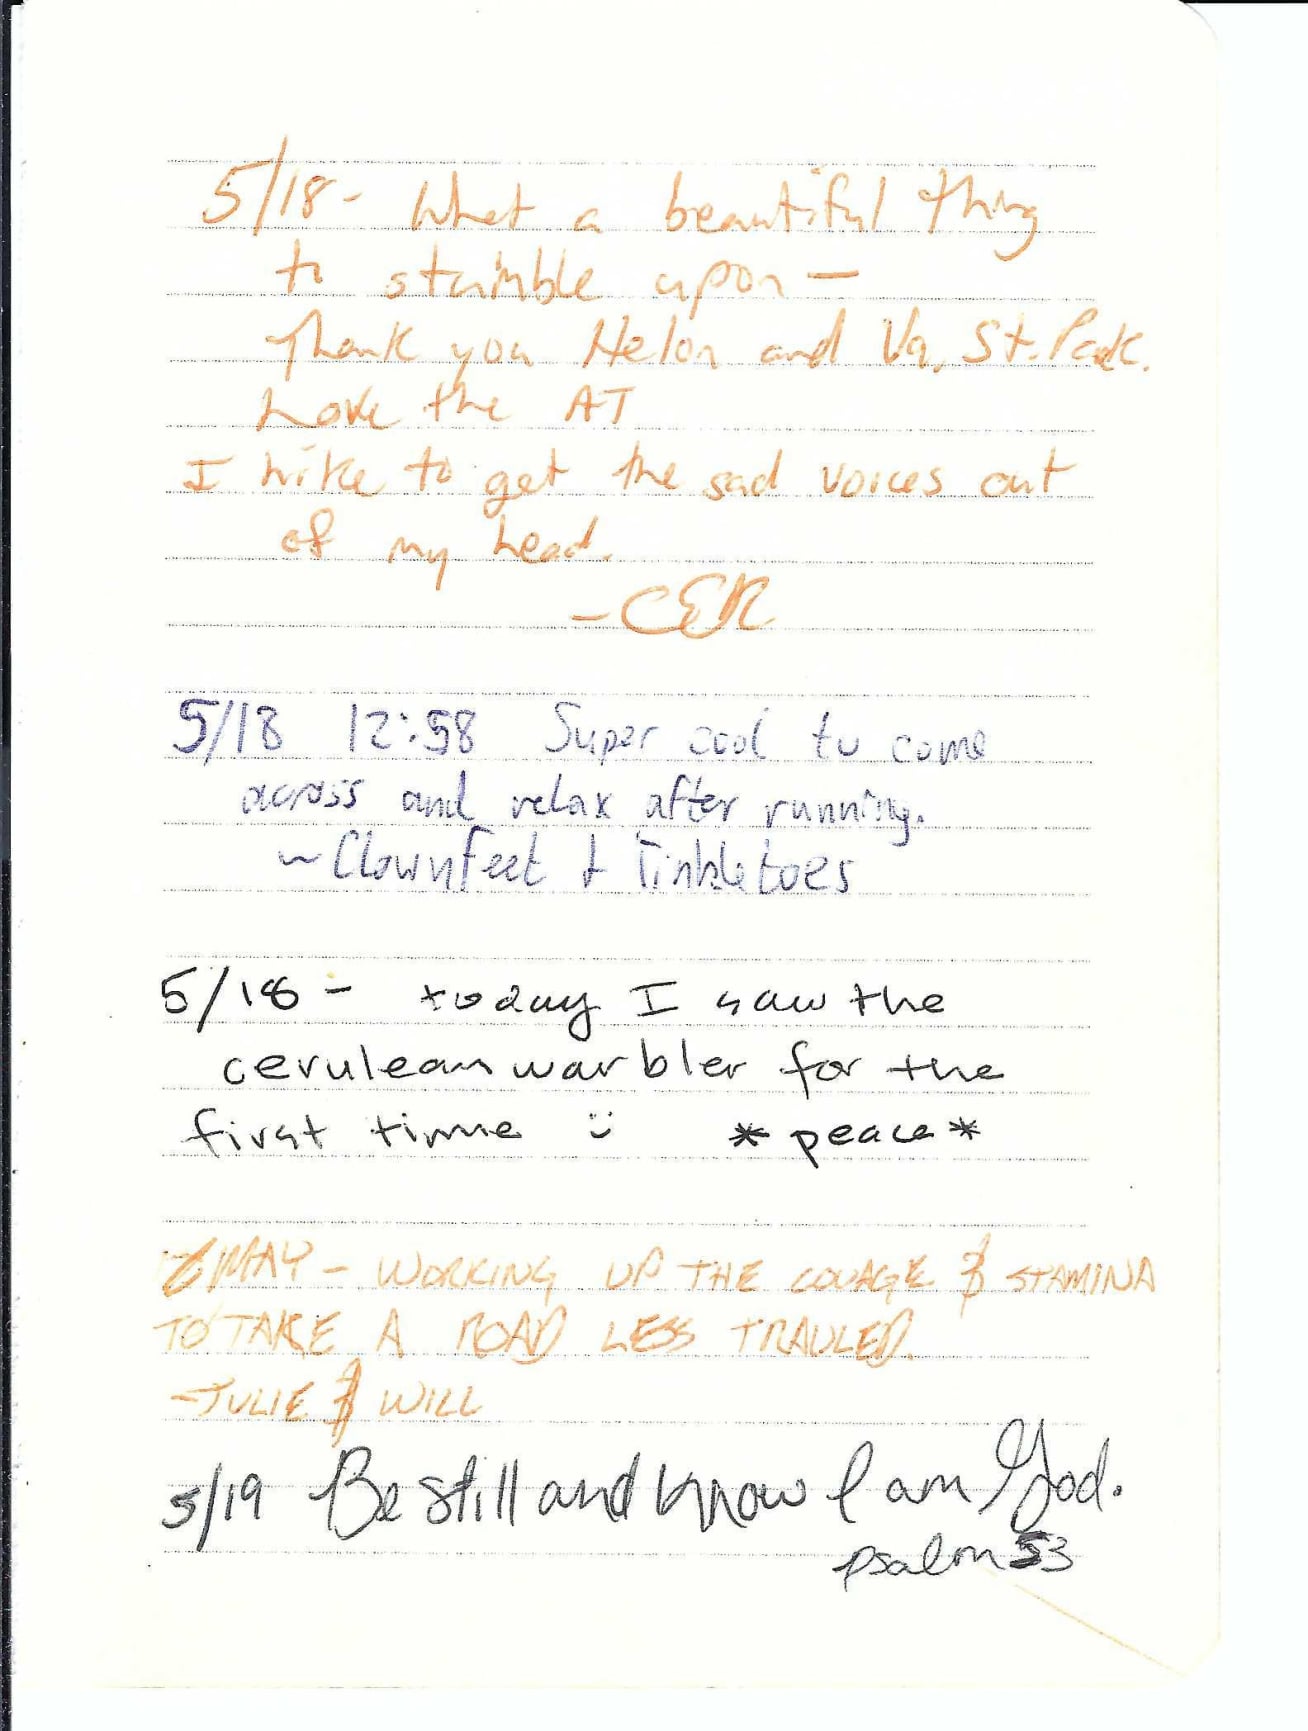 5/18- What a beautiful thing
to stumble upon —
Thank you Helon and Va. St. Park.
Love the AT
I hike to get the sad voices out
of my head.
-CER
5/18 12:58 Super cool to come
across and relax after running.
~ Clownfeet & Tinkletoes
5/18 - today I saw the
cerulean warbler for the
first time :) *peace*
MAY - WORKING UP THE COUAGE & STAMINA
TO TAKE A ROAD LESS TRAVLED.
-JULIE & WILL
5/19 Be still and know I am God.
psalm 53